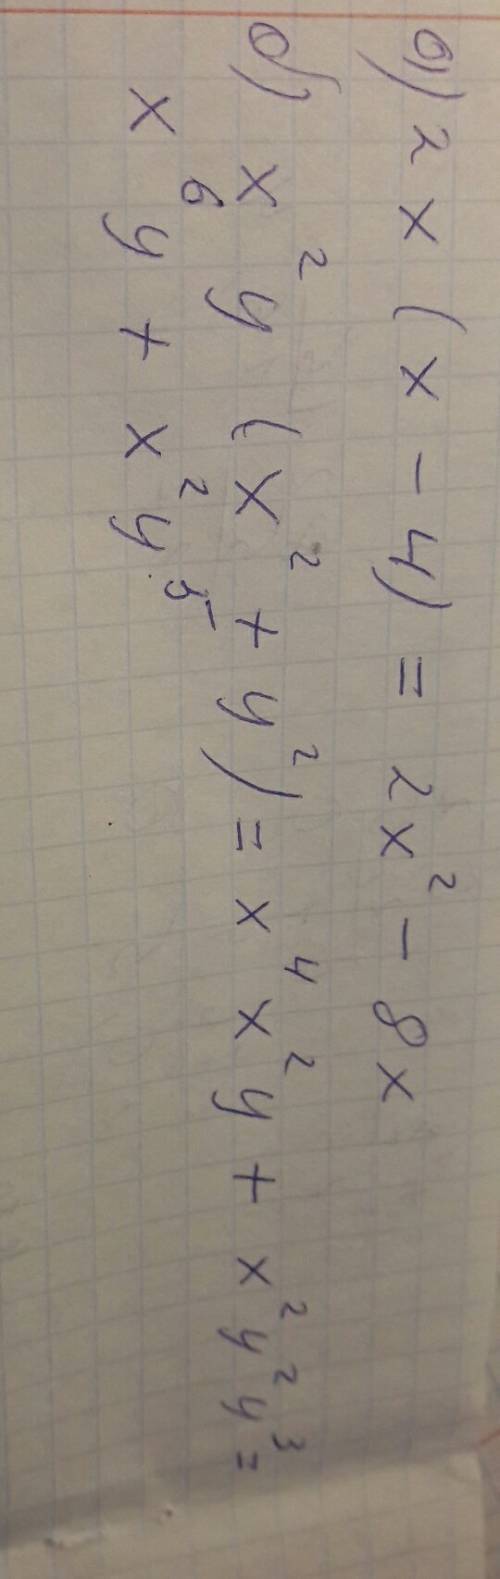 а) 2x(x-4) = 2x² - 8x
б) x²y(x² + y²) = x⁴x²y + x²y²y³ =
x⁶y + x²y⁵